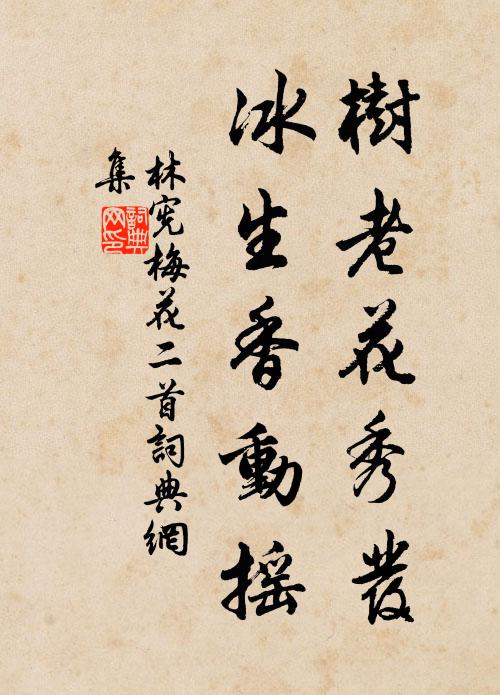 樹老花秀發
冰生香動搖
林憲梅花二首詞典網
集
詞典
网印